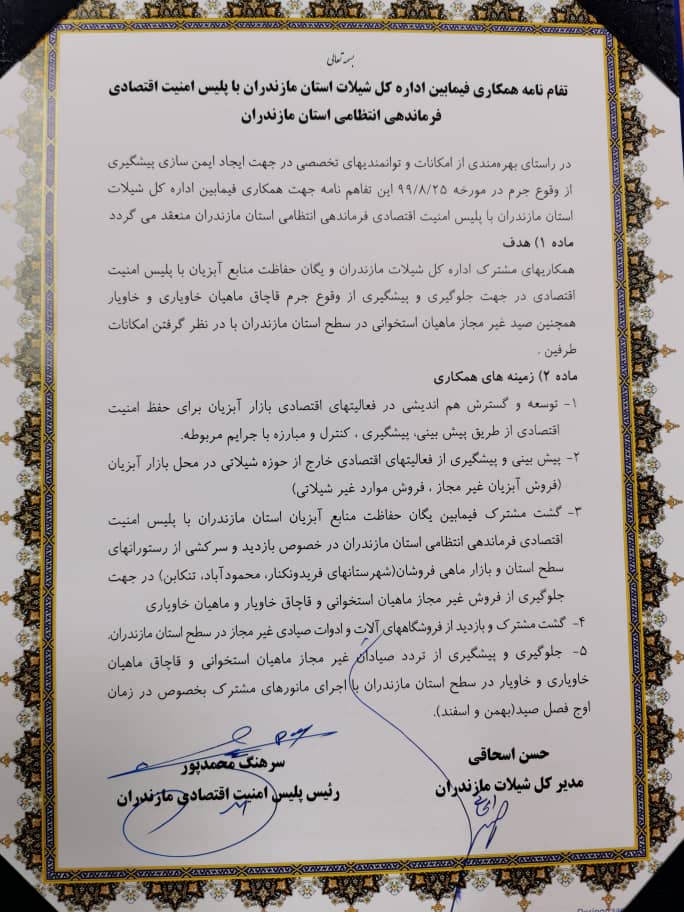 بسمه تعالی
تفام نامه همکاری فیمابین اداره کل شیلات استان مازندران با پلیس امنیت اقتصادی
فرماندهی انتظامی استان مازندران
در راستای بهره‌مندی از امکانات و توانمندیهای تخصصی در جهت ایجاد ایمن سازی پیشگیری
از وقوع جرم در مورخه ۹۹/۸/۲۵ این تفاهم نامه جهت همکاری فیمابین اداره کل شیلات
استان مازندران با پلیس امنیت اقتصادی فرماندهی انتظامی استان مازندران منعقد می گردد
ماده ۱) هدف
همکاریهای مشترک اداره کل شیلات مازندران و یگان حفاظت منابع آبزیان با پلیس امنیت
اقتصادی در جهت جلوگیری و پیشگیری از وقوع جرم قاچاق ماهیان خاویاری و خاویار
همچنین صید غیر مجاز ماهیان استخوانی در سطح استان مازندران با در نظر گرفتن امکانات
طرفین .
ماده ۲) زمینه های همکاری
۱- توسعه و گسترش هم اندیشی در فعالیتهای اقتصادی بازار آبزیان برای حفظ امنیت
اقتصادی از طریق پیش بینی، پیشگیری ، کنترل و مبارزه با جرایم مربوطه.
۲- پیش بینی و پیشگیری از فعالیتهای اقتصادی خارج از حوزه شیلاتی در محل بازار آبزیان
(فروش آبزیان غیر مجاز ، فروش موارد غیر شیلاتی)
۳- گشت مشترک فیمابین یگان حفاظت منابع آبزیان استان مازندران با پلیس امنیت
اقتصادی فرماندهی انتظامی استان مازندران در خصوص بازدید و سرکشی از رستورانهای
سطح استان و بازار ماهی فروشان(شهرستانهای فریدونکنار، محمودآباد، تنکابن) در جهت
جلوگیری از فروش غیر مجاز ماهیان استخوانی و قاچاق خاویار و ماهیان خاویاری
۴- گشت مشترک و بازدید از فروشگاههای آلات و ادوات صیادی غیر مجاز در سطح استان مازندران.
۵- جلوگیری و پیشگیری از تردد صیادان غیر مجاز ماهیان استخوانی و قاچاق ماهیان
خاویاری و خاویار در سطح استان مازندران با اجرای مانورهای مشترک بخصوص در زمان
اوج فصل صید(بهمن و اسفند).
حسن اسحاقی
مدیر کل شیلات مازندران
سرهنگ محمدپور
رئیس پلیس امنیت اقتصادی مازندران